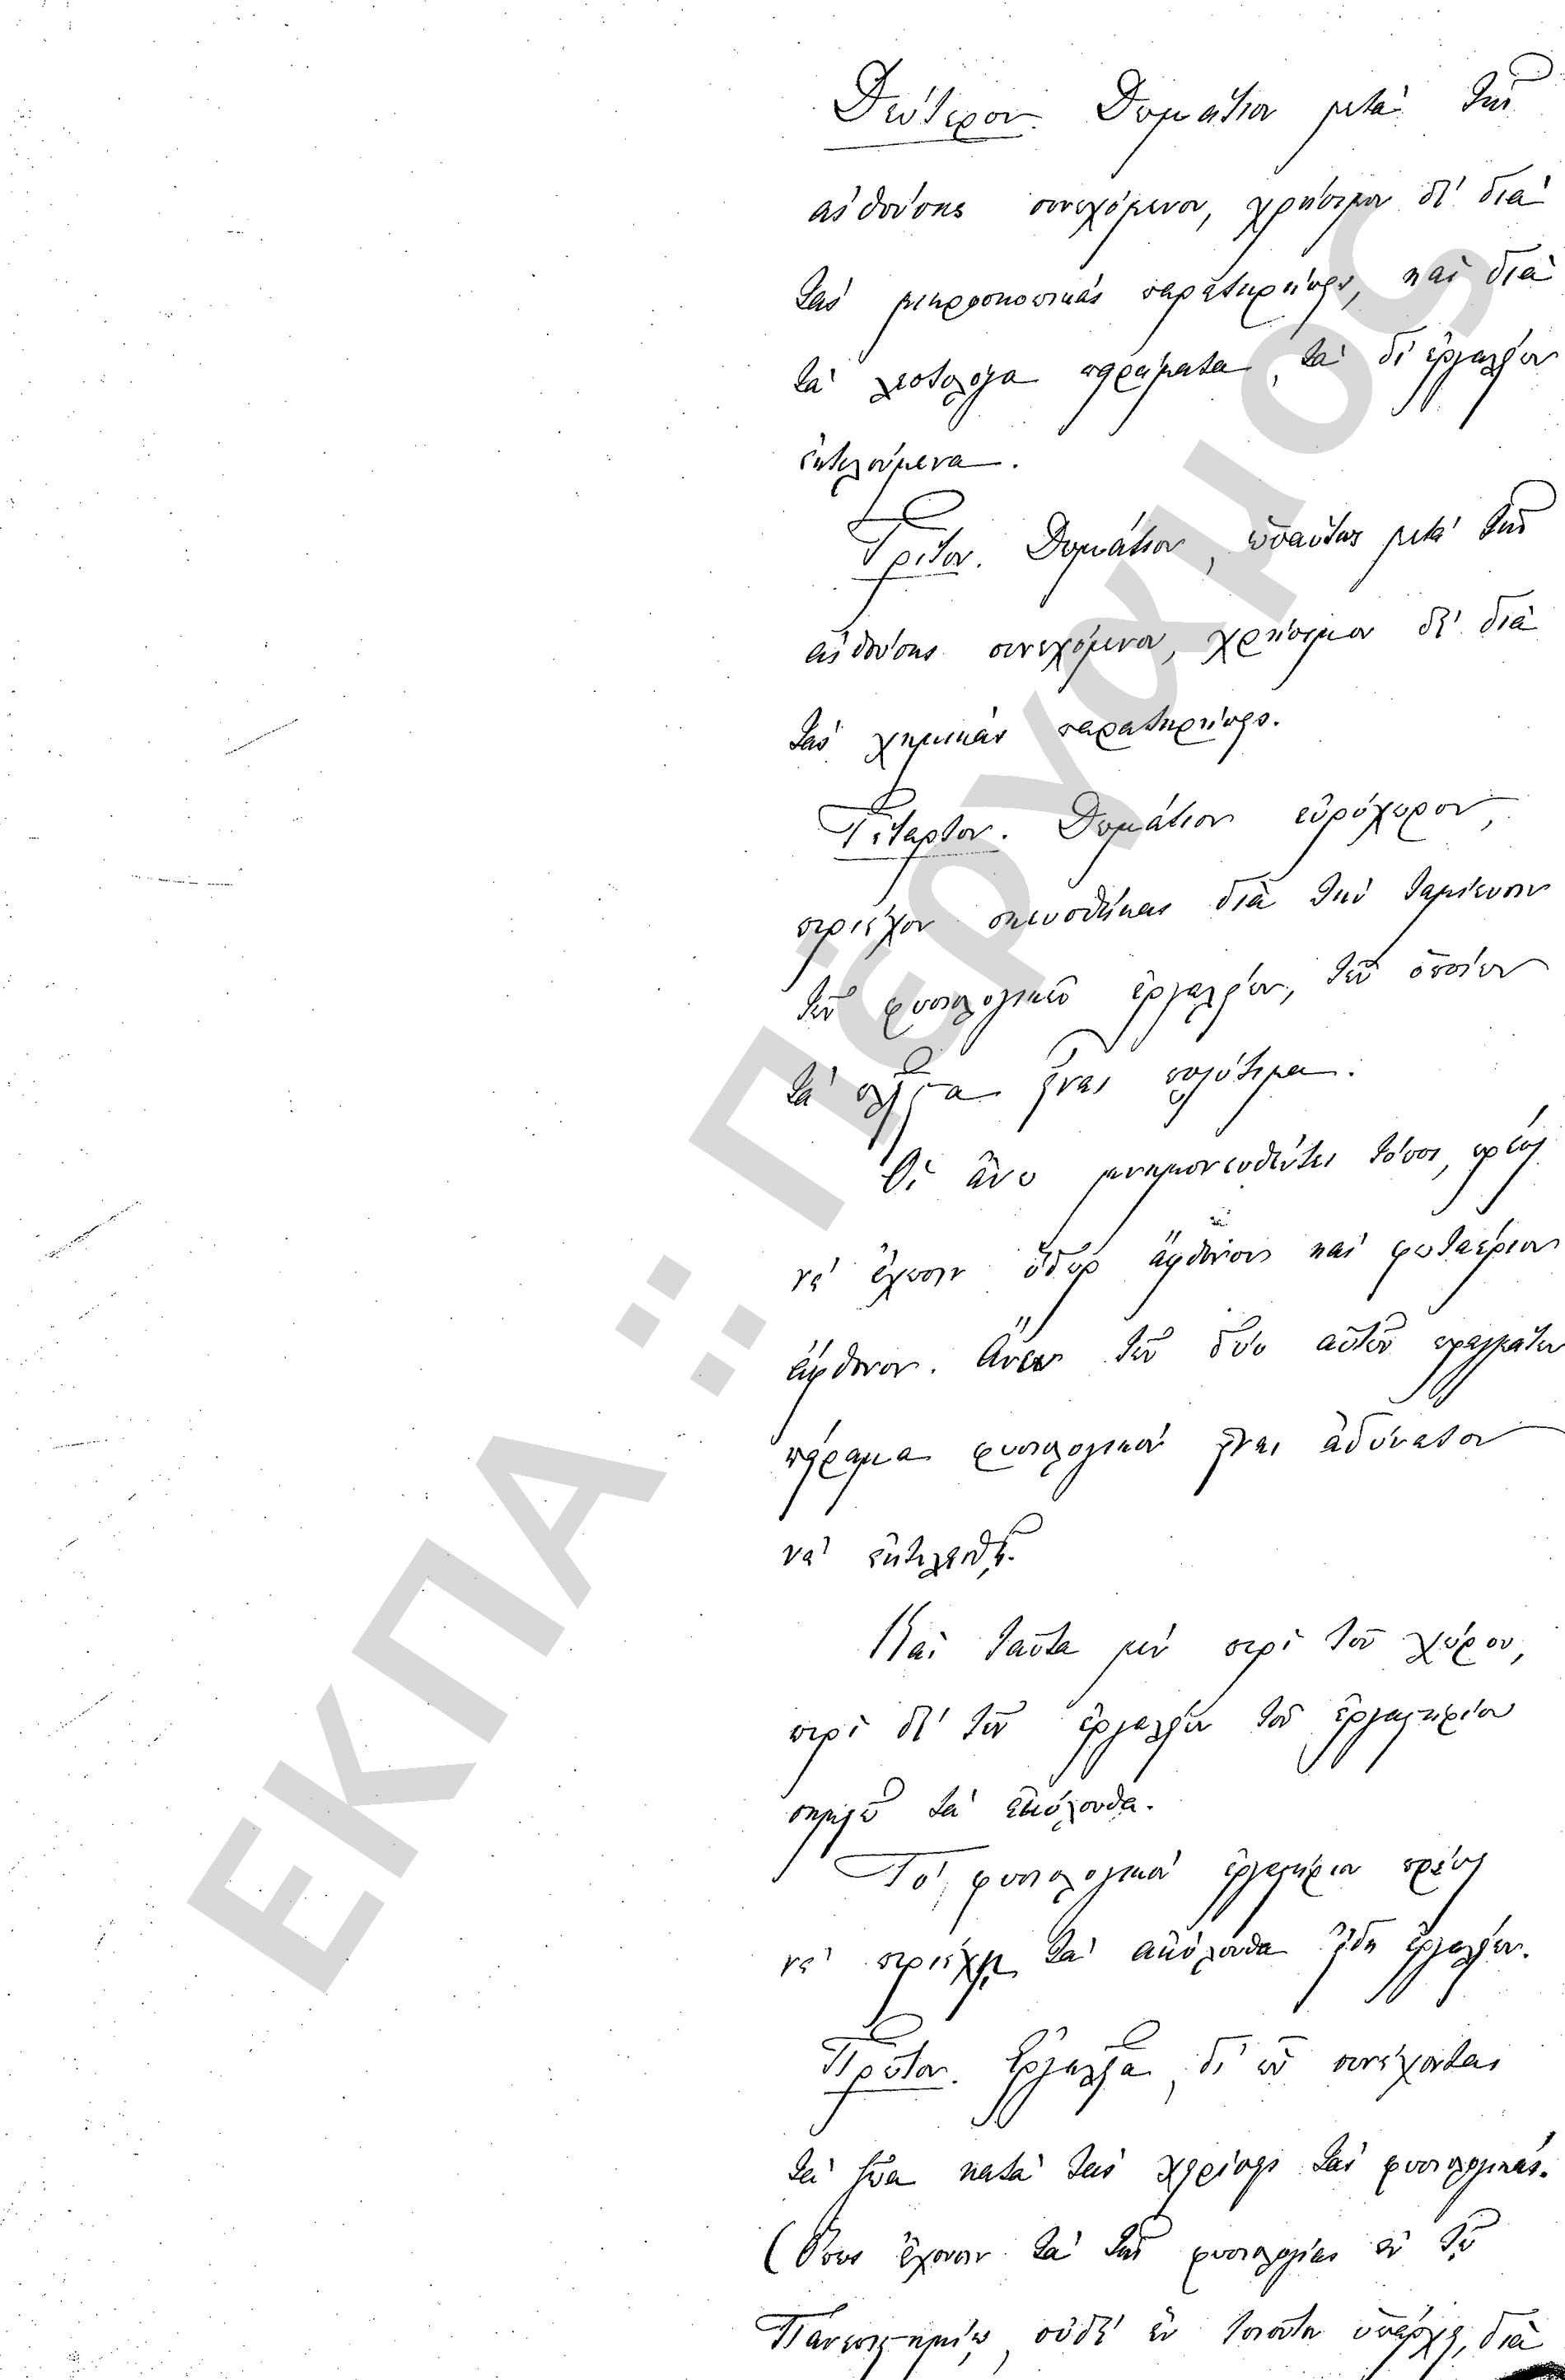 Δεύτερον. Δωμάτιον μετὰ τῆς
αἰθούσης συνεχόμενον, χρήσιμον δὲ διὰ
τὰς μικροσκοπικὰς παρατηρήσεις, καὶ διὰ
τὰ λεπτολόγα πειράματα, τὰ δι' ἐργαλείων
ἐκτελούμενα.
Τρίτον. Δωμάτιον, ὡσαύτως μετὰ τῆς
αἰθούσης συνεχόμενον, χρήσιμον δὲ διὰ
τὰς χημικὰς παρατηρήσεις.
Τέταρτον. Δωμάτιον εὐρύχωρον,
περιέχον σκευοθήκας διὰ τὴν ταμίευσιν
τῶν φυσιολογικῶν ἐργαλείων, τῶν ὁποίων
τὰ πλεῖστα εἶναι πολύτιμα.
Οἱ ἄνω μνημονευθέντες τόποι, πρέπει
νὰ ἔχωσιν ὕδωρ ἄφθονον καὶ φωταέριον
ἄφθονον. Ἄνευ τῶν δύο αὐτῶν πραγμάτων
πείραμα φυσιολογικὸν εἶναι ἀδύνατον
νὰ ἐκτελεσθῇ.
Καὶ ταῦτα μὲν περὶ τοῦ χώρου,
περὶ δὲ τῶν ἐργαλείων τοῦ ἐργαστηρίου
σημειῶ τὰ ἀκόλουθα.
Τὸ φυσιολογικὸν ἐργαστήριον πρέπει
νὰ περιέχῃ τὰ ἀκόλουθα εἴδη ἐργαλείων.
Πρῶτον. Ἐργαλεῖα, δι' ὧν συνέχονται
τὰ ζῷα κατὰ τὰς χειρίσεις τὰς φυσιολογικάς.
(Ὅπως ἔχουσιν τὰ τῆς φυσιολογίας ἐν τῷ
Πανεπιστημίῳ, οὐδὲ ἓν τοιοῦτο ὑπάρχει, διὰ
ΕΚΠΑ :: Πέργαμος